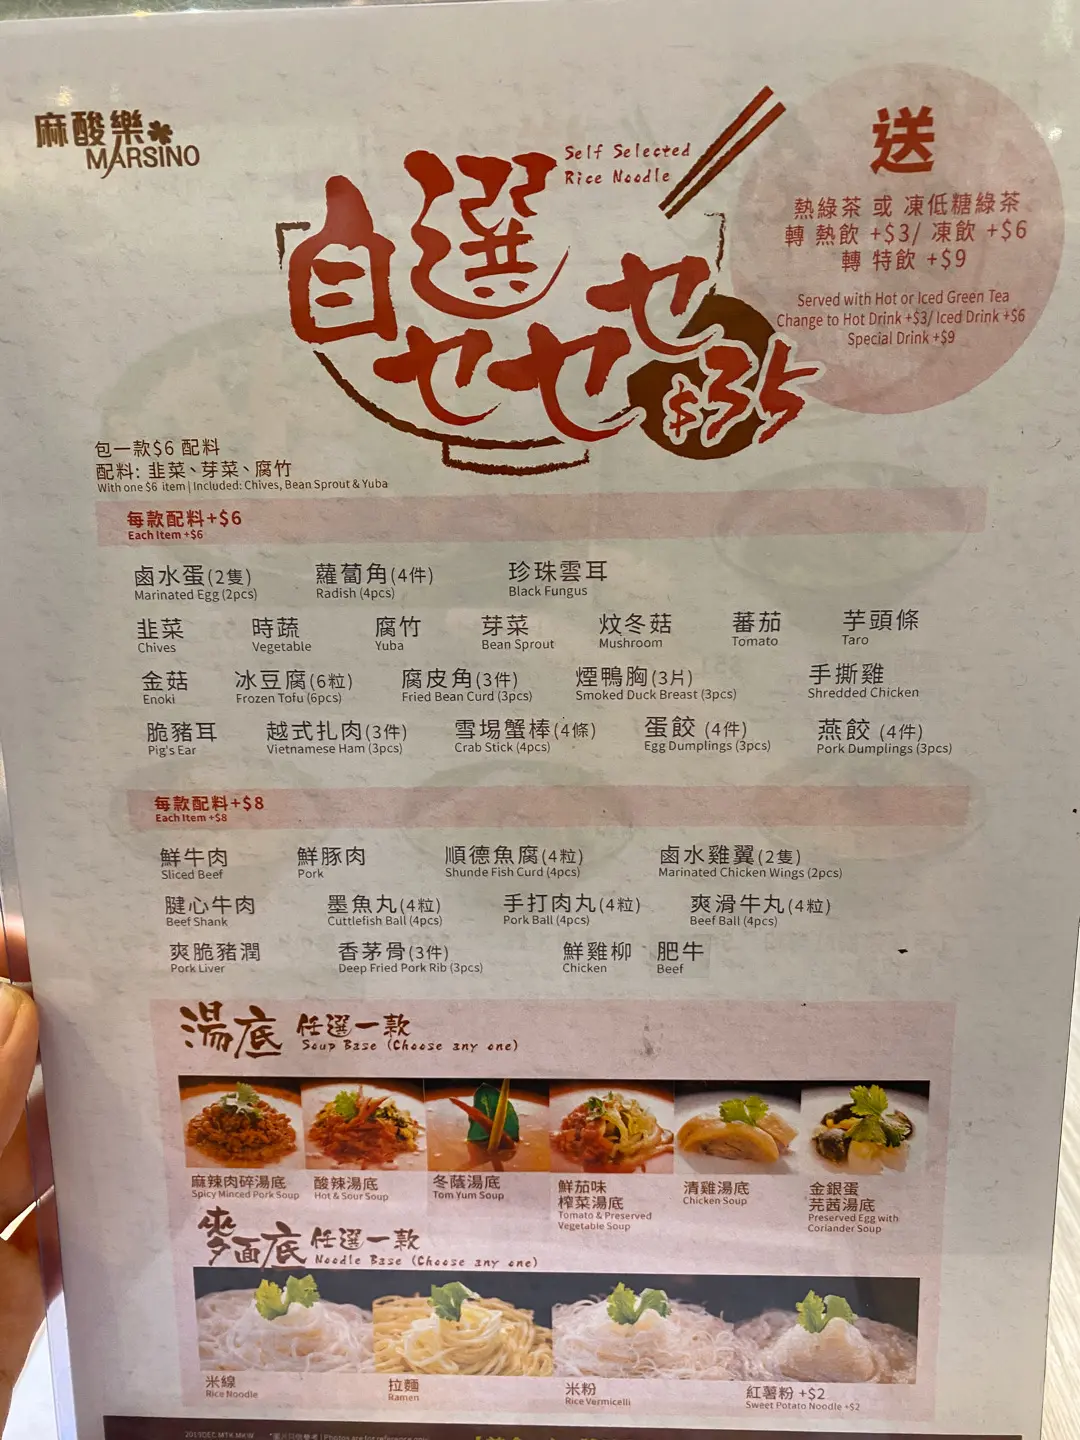 麻酸樂
MARSINO
Self Selected
Rice Noodle
自選
$35
送
熱綠茶 或 凍低糖綠茶
轉 熱飲 +$3/ 凍飲 +$6
轉 特飲 +$9
Served with Hot or Iced Green Tea
Change to Hot Drink +$3/ Iced Drink +$6
Special Drink +$9
包一款$6 配料
配料: 韭菜、芽菜、腐竹
With one $6 item | Included: Chives, Bean Sprout & Yuba
每款配料+$6
Each Item +$6
鹵水蛋(2隻) 蘿蔔角(4件) 珍珠雲耳
Marinated Egg (2pcs) Radish (4pcs) Black Fungus
韭菜 時蔬 腐竹 芽菜 炆冬菇 蕃茄 芋頭條
Chives Vegetable Yuba Bean Sprout Mushroom Tomato Taro
金菇 冰豆腐(6粒) 腐皮角(3件) 煙鴨胸(3片) 手撕雞
Enoki Frozen Tofu (6pcs) Fried Bean Curd (3pcs) Smoked Duck Breast (3pcs) Shredded Chicken
脆豬耳 越式扎肉(3件) 雪場蟹棒(4條) 蛋餃 (4件) 燕餃 (4件)
Pig's Ear Vietnamese Ham (3pcs) Crab Stick (4pcs) Egg Dumplings (3pcs) Pork Dumplings (3pcs)
每款配料+$8
Each Item +$8
鮮牛肉 鮮豚肉 順德魚腐(4粒) 鹵水雞翼(2隻)
Sliced Beef Pork Shunde Fish Curd (4pcs) Marinated Chicken Wings (2pcs)
腱心牛肉 墨魚丸(4粒) 手打肉丸(4粒) 爽滑牛丸(4粒)
Beef Shank Cuttlefish Ball (4pcs) Pork Ball (4pcs) Beef Ball (4pcs)
爽脆豬潤 香茅骨(3件) 鮮雞柳 肥牛
Pork Liver Deep Fried Pork Rib (3pcs) Chicken Beef
湯底 任選一款
Soup Base (Choose any one)
麻辣肉碎湯底 酸辣湯底 冬蔭湯底 鮮茄味 清雞湯底 金銀蛋
榨菜湯底 芫茜湯底
Spicy Minced Pork Soup Hot & Sour Soup Tom Yum Soup Tomato & Preserved Chicken Soup Preserved Egg with
Vegetable Soup Coriander Soup
麥面底 任選一款
Noodle Base (Choose any one)
米線 拉麵 米粉 紅薯粉 +$2
Rice Noodle Ramen Rice Vermicelli Sweet Potato Noodle +$2